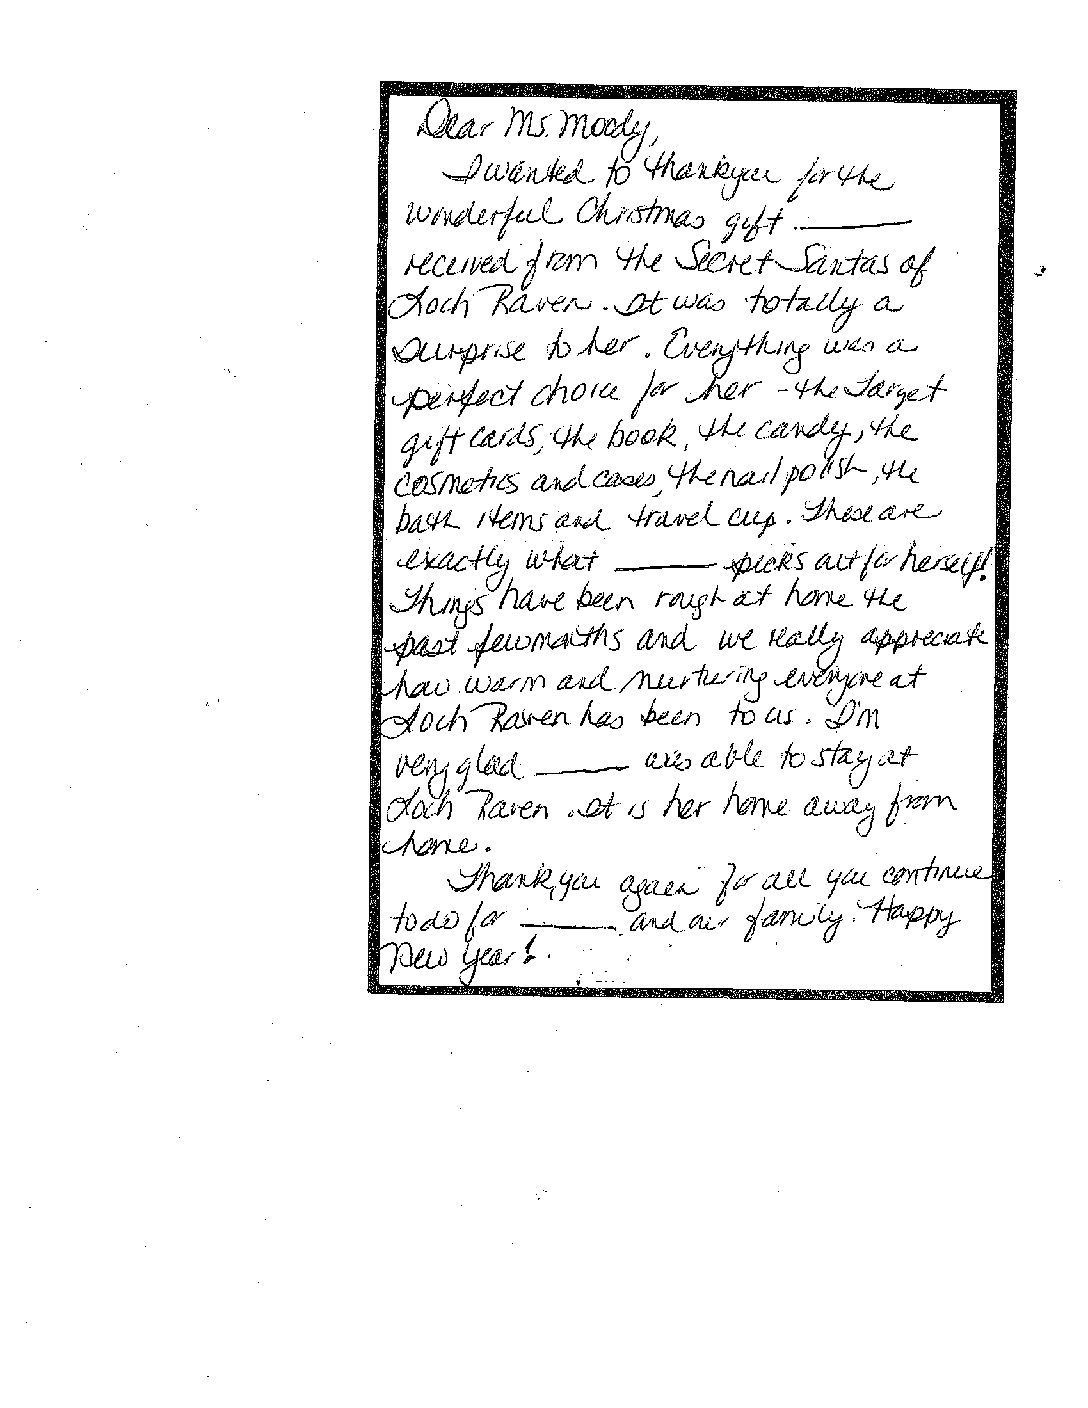 Dear Ms. Moody,
I wanted to thank you for the
wonderful Christmas gift ______
received from the Secret Santas of
Loch Raven. It was totally a
surprise to her. Everything was a
perfect choice for her - the Target
gift cards, the book, the candy, the
cosmetics and cases, the nail polish, the
bath items and travel cup. These are
exactly what ______ picks out for herself!
Things have been rough at home the
past few months and we really appreciate
how warm and nurturing everyone at
Loch Raven has been to us. I'm
very glad ______ was able to stay at
Loch Raven. It is her home away from
home.
Thank you again for all you continue
to do for ______ and our family. Happy
New Year!